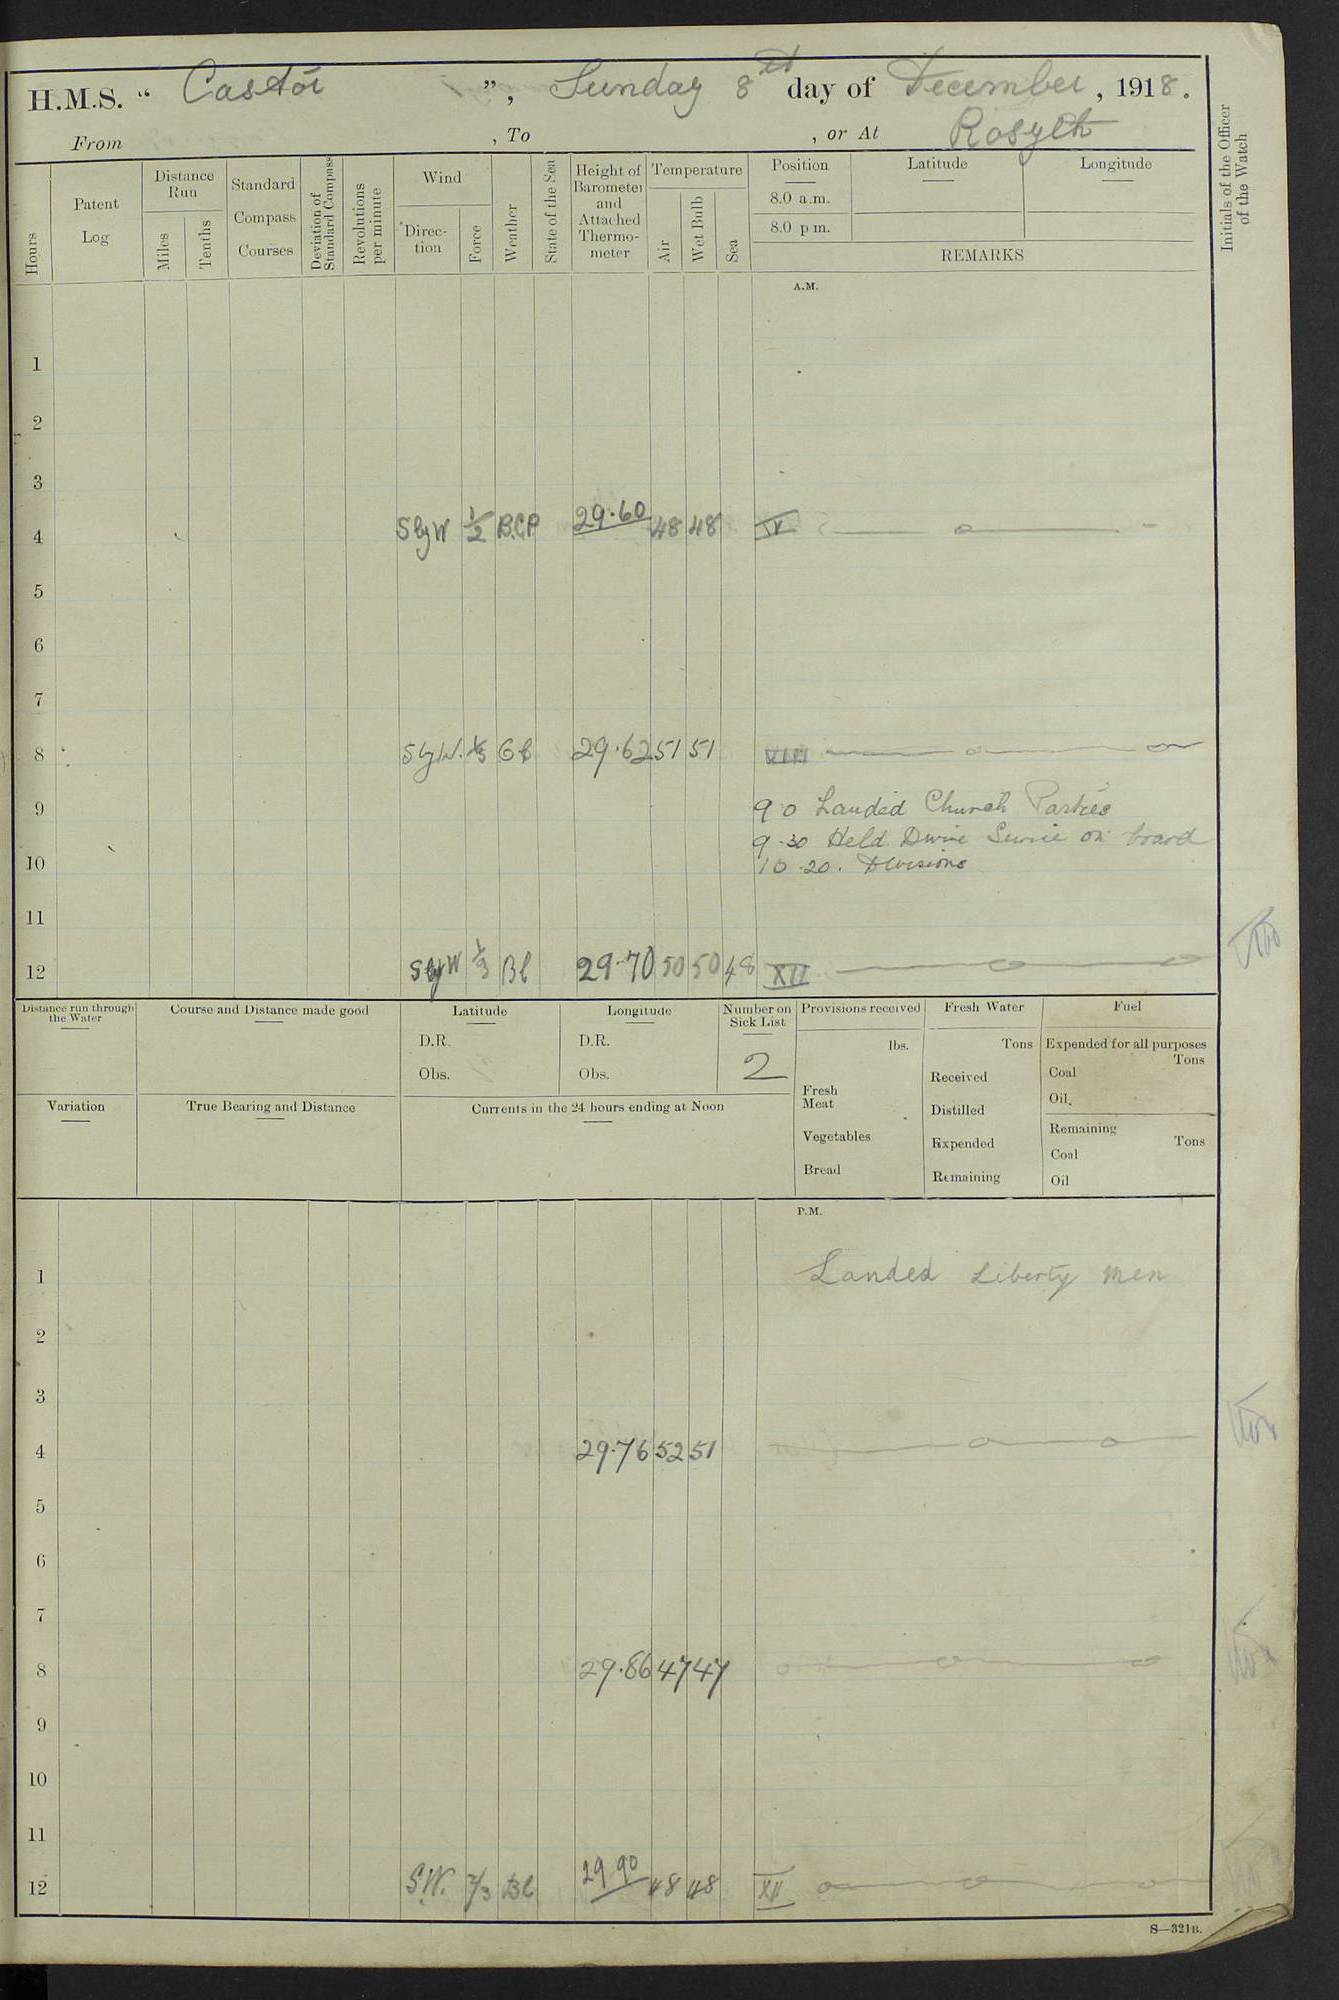 H.M.S. “ Castor ”, Sunday 8th day of December, 1918.
From , To , or At Rosyth
Hours
Patent Log
Distance Run
Miles
Tenths
Standard Compass Courses
Deviation of Standard Compass
Revolutions per minute
Wind
Direc-tion
Force
Weather
State of the Sea
Height of Barometer and Attached Thermo-meter
Temperature
Air
Wet Bulb
Sea
Position
8.0 a.m.
8.0 p m.
Latitude
Longitude
REMARKS
Initials of the Officer of the Watch
A.M.
1
2
3
4 S by W 1/2 B.C.P 29.60 48 48 IV
5
6
7
8 S by W. 1/3 29.62 51 51 VIII
9 9 0 Landed Church Parties
9.30 Held Divine Service on board
10 10.20. Divisions
11
12 S by W 1/3 29.70 50 50 48 XII
Distance run through the Water
Course and Distance made good
Latitude
D.R.
Obs.
Longitude
D.R.
Obs.
Number on Sick List
2
Provisions received
lbs.
Fresh Meat
Vegetables
Bread
Fresh Water
Tons
Received
Distilled
Expended
Remaining
Fuel
Expended for all purposes
Tons
Coal
Oil.
Remaining
Tons
Coal
Oil
Variation
True Bearing and Distance
Currents in the 24 hours ending at Noon
P.M.
1 Landed Liberty men
2
3
4 29.76 52 51
5
6
7
8 29.86 47 47
9
10
11
12 S.W. 2/3 29 90 48 48 XII
S—321B.